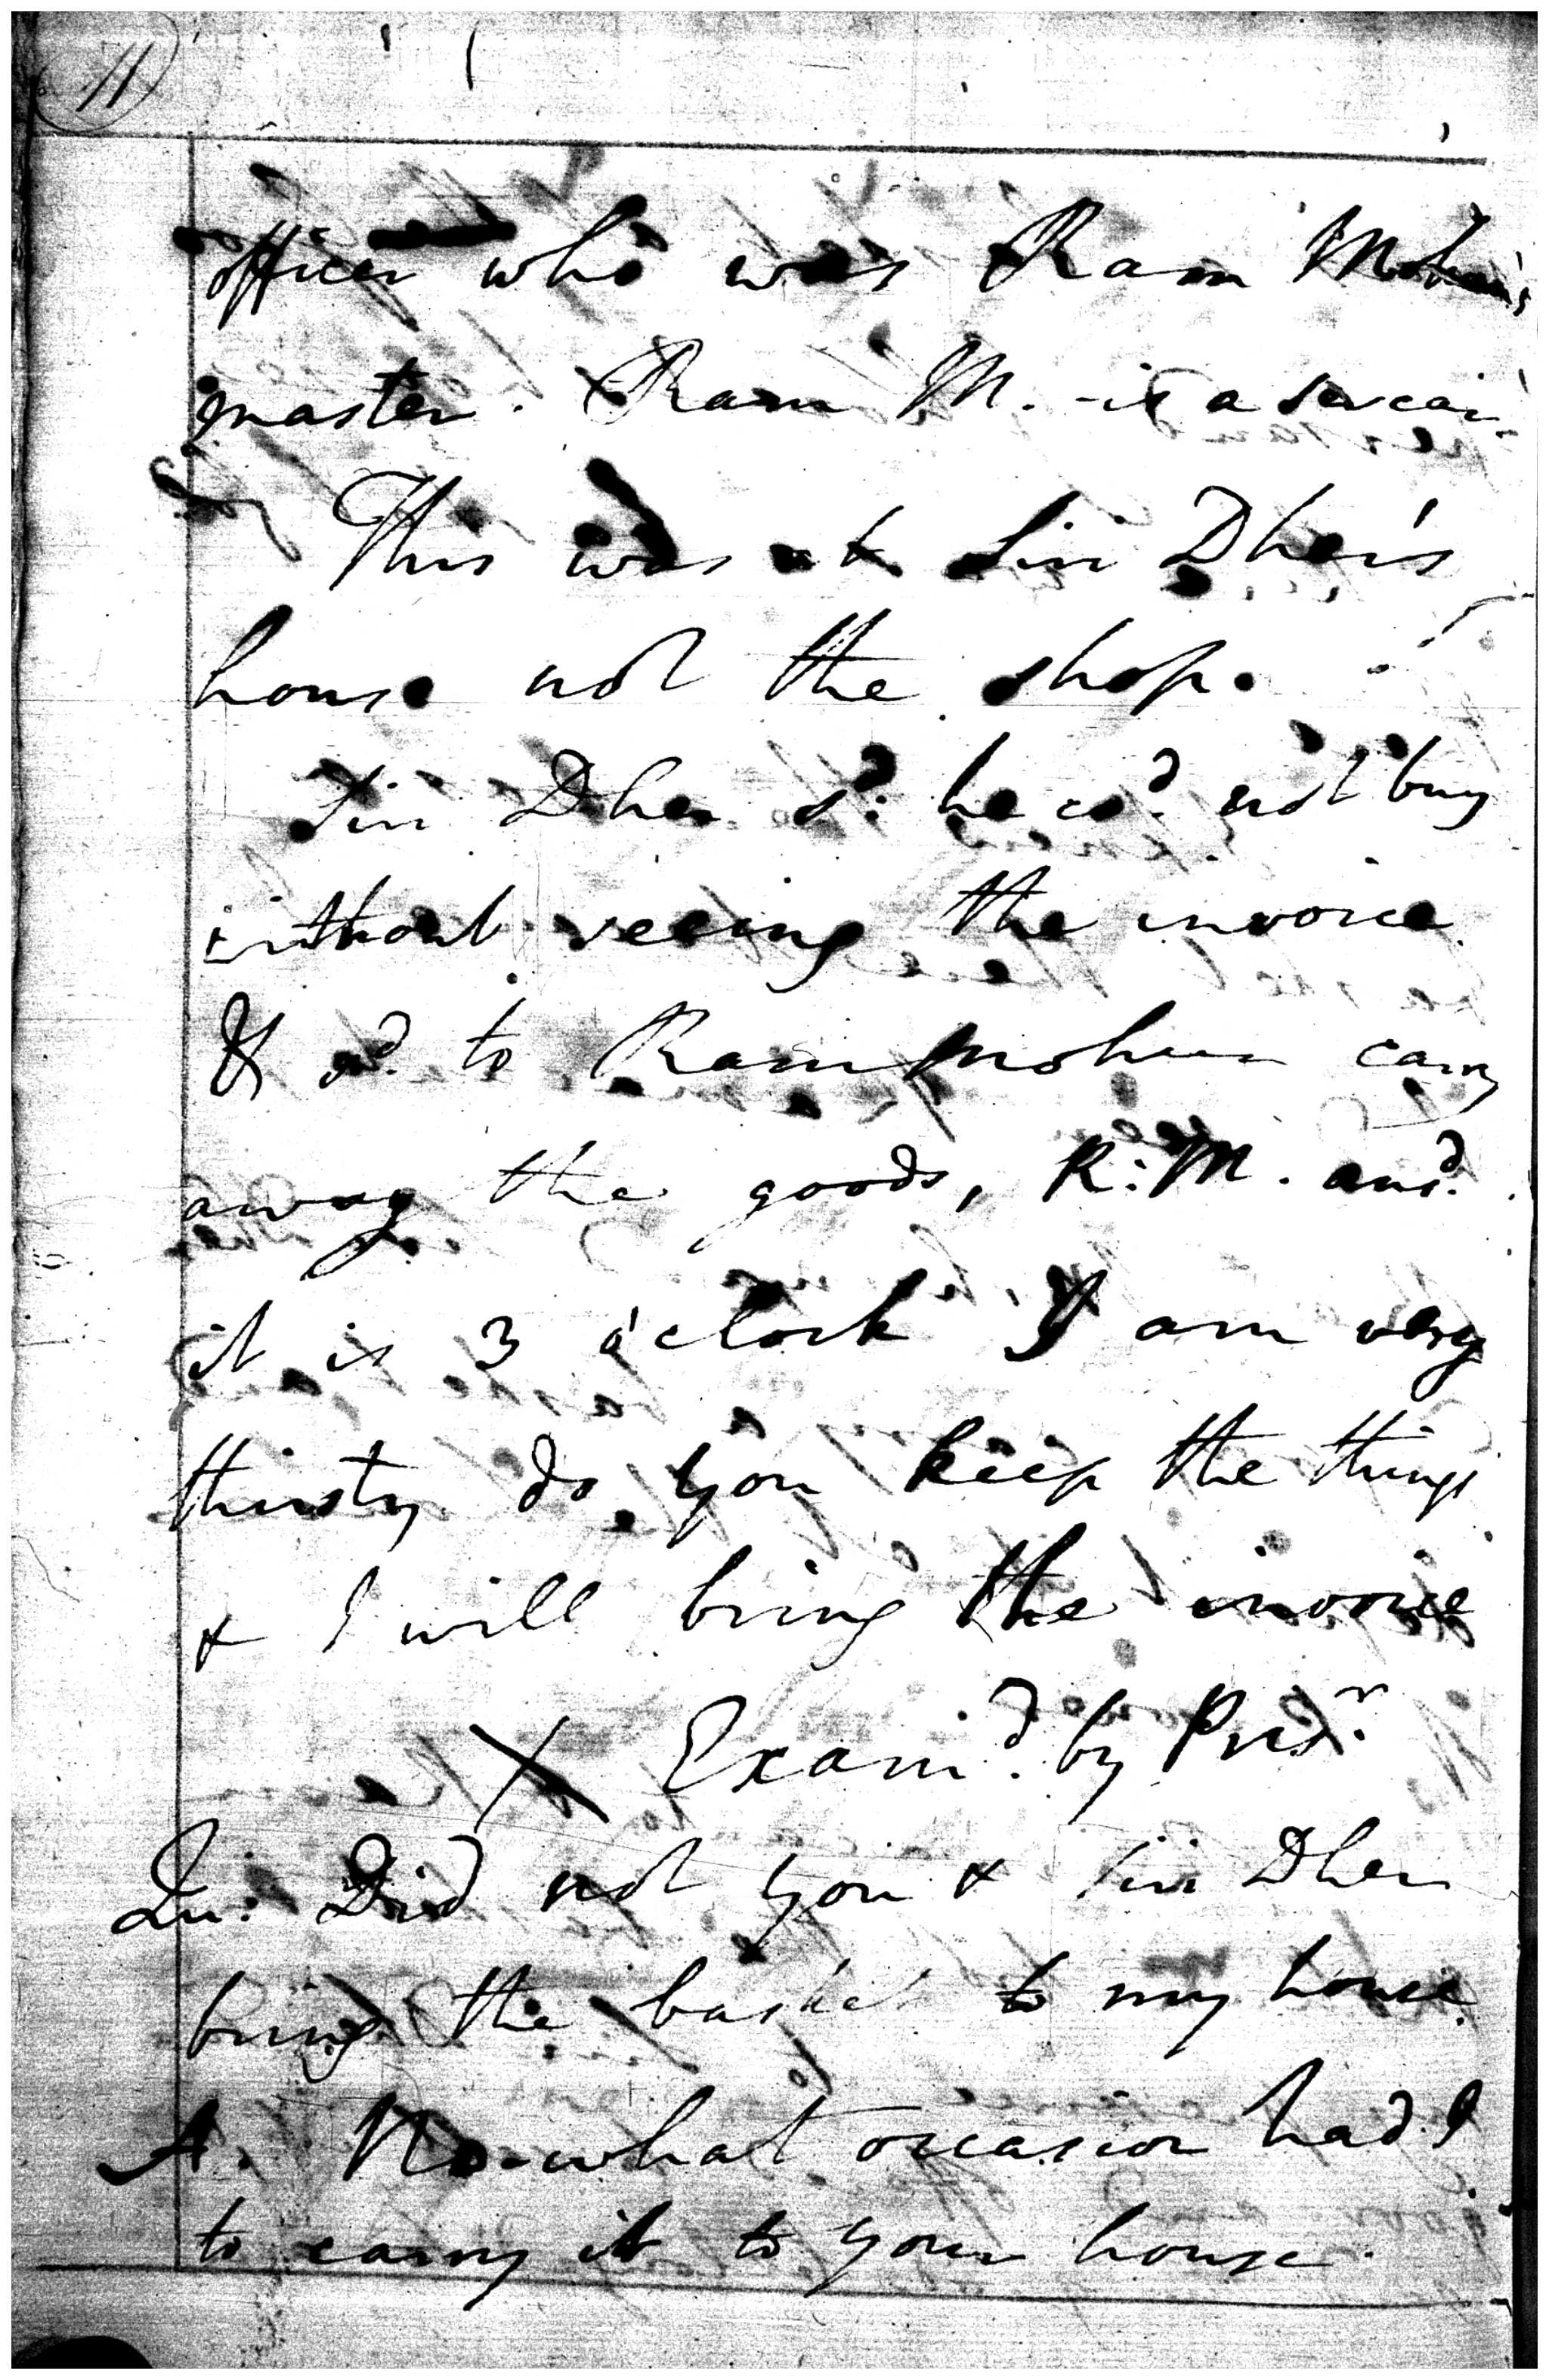 11
officer who was Ram Mohun's
master. Ram M. is a sircar
This was at Siri Dher's
house not the shop.
Siri Dher sd: he cod. not buy
without seeing the invoice
& sd. to Ram Mohun carry
away the goods, R: M. ansd.
it is 3 o'clock I am very
thirsty do you keep the things
& I will bring the invoice
X Examd. by Prisr.
Qu: Did not you & Siri Dher
bring the basket to my house.
A. No what occasion had I
to carry it to your house.